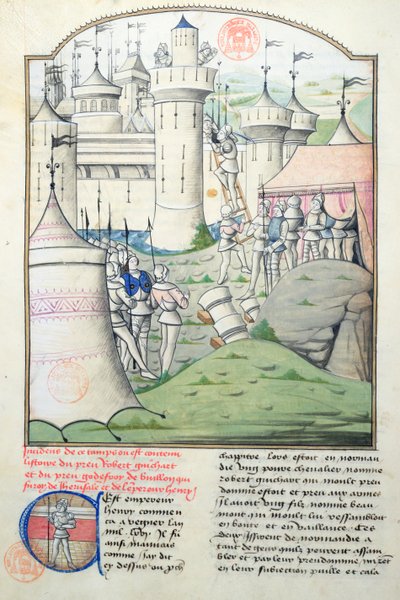 Incidens de ce temps ou est contenu
listoire du preu Robert guichart
et du preu godefroy de buillon qui
fu roy de iherusalem et de lempereur henry
Cest empereur
henry commen
ca a regner lan
mil
Il fu
ainsi
comme iay dit
cy dessus ou pre
chappitre Lors estoit en norman
die ung povre chevalier nomme
robert guichart qui moult preu
domme estoit et preu aux armes
Il avoit ung filz nomme beau
mont qui moult luy ressambloit
en bonte et en vaillance Ces
deux issirent de normandie a
tant de gens quilz peurent assam
bler et par leur preudommie mirent
en leur subiection puille et cala